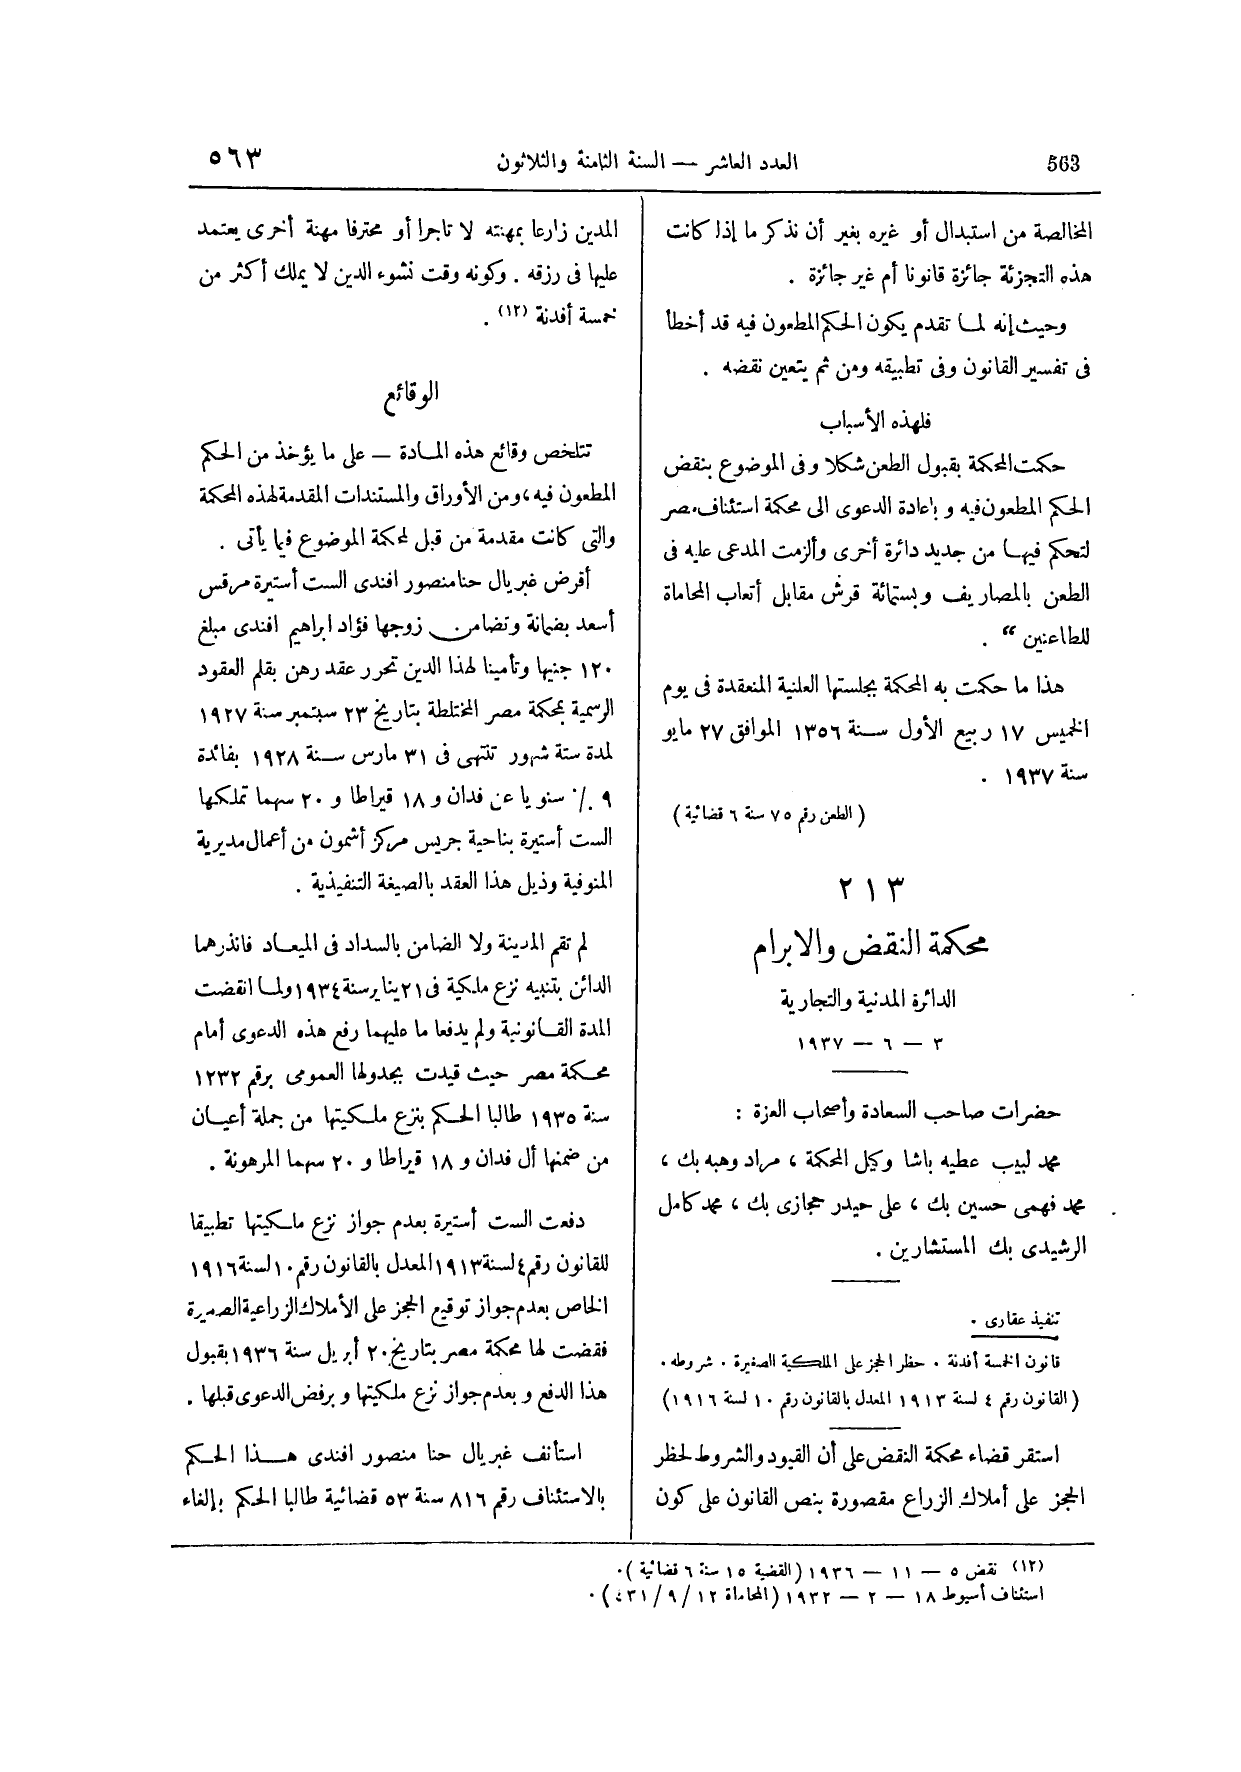 563
العدد العاشر — السنة الثامنة والثلاثون
٥٦٣
المخالصة من استبدال أو غيره بغير أن نذكر ما إذا كانت
هذه التجزئة جائزة قانونا أم غير جائزة .
وحيث إنه لما تقدم يكون الحكم المطعون فيه قد أخطأ
فى تفسير القانون وفى تطبيقه ومن ثم يتعين نقضه .
فلهذه الأسباب
حكمت المحكمة بقبول الطعن شكلا وفى الموضوع بنقض
الحكم المطعون فيه و بإعادة الدعوى الى محكمة استئناف مصر
لتحكم فيها من جديد دائرة أخرى وألزمت المدعى عليه فى
الطعن بالمصاريف وبستمائة قرش مقابل أتعاب المحاماة
للطاعنين “ .
هذا ما حكمت به المحكمة بجلستها العلنية المنعقدة فى يوم
الخميس ١٧ ربيع الأول سنة ١٣٥٦ الموافق ٢٧ مايو
سنة ١٩٣٧ .
( الطعن رقم ٧٥ سنة ٦ قضائية )
٢١٣
محكمة النقض والابرام
الدائرة المدنية والتجارية
٣ — ٦ — ١٩٣٧
حضرات صاحب السعادة وأصحاب العزة :
محمد لبيب عطيه باشا وكيل المحكمة ، مراد وهبه بك ،
محمد فهمى حسين بك ، على حيدر حجازى بك ، محمد كامل
الرشيدى بك المستشارين .
تنفيذ عقارى .
قانون الخمسة أفدنة . حظر الحجز على الملكية الصغيرة . شروطه .
( القانون رقم ٤ لسنة ١٩١٣ المعدل بالقانون رقم ١٠ لسنة ١٩١٦ )
استقر قضاء محكمة النقض على أن القيود والشروط لحظر
الحجز على أملاك الزراع مقصورة بنص القانون على كون
المدين زارعا بمهنته لا تاجرا أو محترفا مهنة أخرى يعتمد
عليها فى رزقه . وكونه وقت نشوء الدين لا يملك أكثر من
خمسة أفدنة (١٢) .
الوقائع
تتلخص وقائع هذه المادة — على ما يؤخذ من الحكم
المطعون فيه ، ومن الأوراق والمستندات المقدمة لهذه المحكمة
والتى كانت مقدمة من قبل لمحكمة الموضوع فيما يأتى .
أقرض غبريال حنا منصور افندى الست أستيرة مرقس
أسعد بضمانة وتضامن زوجها فؤاد ابراهيم افندى مبلغ
١٢٠ جنيها وتأمينا لهذا الدين تحرر عقد رهن بقلم العقود
الرسمية بمحكمة مصر المختلطة بتاريخ ٢٣ سبتمبر سنة ١٩٢٧
لمدة ستة شهور تنتهى فى ٣١ مارس سنة ١٩٢٨ بفائدة
٩ ٪ سنويا عن فدان و ١٨ قيراطا و ٢٠ سهما تملكها
الست أستيرة بناحية جريس مركز أشمون من أعمال مديرية
المنوفية وذيل هذا العقد بالصيغة التنفيذية .
لم تقم المدينة ولا الضامن بالسداد فى الميعاد فانذرهما
الدائن بتنبيه نزع ملكية فى ٢١ يناير سنة ١٩٣٤ ولما انقضت
المدة القانونية ولم يدفعا ما عليهما رفع هذه الدعوى أمام
محكمة مصر حيث قيدت بجدولها العمومى برقم ١٢٣٢
سنة ١٩٣٥ طالبا الحكم بنزع ملكيتها من جملة أعيان
من ضمنها أل فدان و ١٨ قيراطا و ٢٠ سهما المرهونة .
دفعت الست أستيرة بعدم جواز نزع ملكيتها تطبيقا
للقانون رقم ٤ لسنة ١٩١٣ المعدل بالقانون رقم ١٠ لسنة ١٩١٦
الخاص بعدم جواز توقيع الحجز على الأملاك الزراعية الصغيرة
فقضت لها محكمة مصر بتاريخ ٢٠ أبريل سنة ١٩٣٦ بقبول
هذا الدفع و بعدم جواز نزع ملكيتها و برفض الدعوى قبلها .
استأنف غبريال حنا منصور افندى هذا الحكم
بالاستئناف رقم ٨١٦ سنة ٥٣ قضائية طالبا الحكم بإلغاء
(١٢) نقض ٥ — ١١ — ١٩٣٦ ( القضية ١٥ سنة ٦ قضائية ) .
استئناف أسيوط ١٨ — ٢ — ١٩٣٢ ( المحاماة ١٢ / ٩ / ٤٣١ ) .